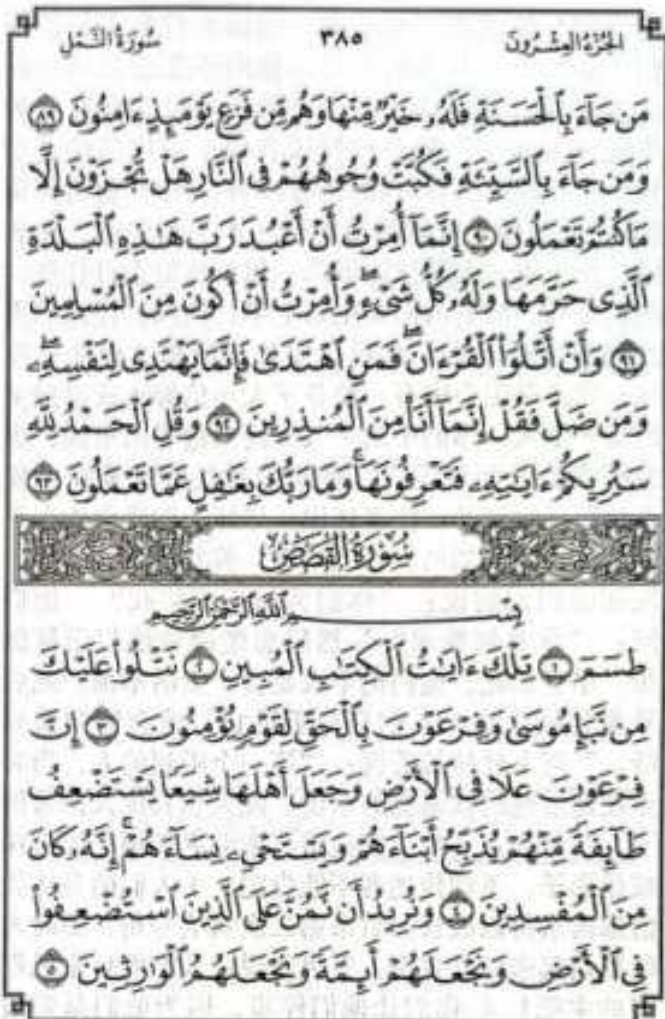 الجزء العشرون ٣٨٥ سورة النمل
مَن جَآءَ بِٱلْحَسَنَةِ فَلَهُۥ خَيْرٌ مِّنْهَا وَهُم مِّن فَزَعٍ يَوْمَئِذٍ ءَامِنُونَ ٨٩
وَمَن جَآءَ بِٱلسَّيِّئَةِ فَكُبَّتْ وُجُوهُهُمْ فِى ٱلنَّارِ هَلْ تُجْزَوْنَ إِلَّا
مَا كُنتُمْ تَعْمَلُونَ ٩٠ إِنَّمَآ أُمِرْتُ أَنْ أَعْبُدَ رَبَّ هَٰذِهِ ٱلْبَلْدَةِ
ٱلَّذِى حَرَّمَهَا وَلَهُۥ كُلُّ شَىْءٍۖ وَأُمِرْتُ أَنْ أَكُونَ مِنَ ٱلْمُسْلِمِينَ
٩١ وَأَنْ أَتْلُوَا۟ ٱلْقُرْءَانَۖ فَمَنِ ٱهْتَدَىٰ فَإِنَّمَا يَهْتَدِى لِنَفْسِهِۦۖ
وَمَن ضَلَّ فَقُلْ إِنَّمَآ أَنَا۠ مِنَ ٱلْمُنذِرِينَ ٩٢ وَقُلِ ٱلْحَمْدُ لِلَّهِ
سَيُرِيكُمْ ءَايَٰتِهِۦ فَتَعْرِفُونَهَاۚ وَمَا رَبُّكَ بِغَٰفِلٍ عَمَّا تَعْمَلُونَ ٩٣
سُورَةُ القَصَصِ
بِسْمِ ٱللَّهِ ٱلرَّحْمَٰنِ ٱلرَّحِيمِ
طسٓمٓ ١ تِلْكَ ءَايَٰتُ ٱلْكِتَٰبِ ٱلْمُبِينِ ٢ نَتْلُوا۟ عَلَيْكَ
مِن نَّبَإِ مُوسَىٰ وَفِرْعَوْنَ بِٱلْحَقِّ لِقَوْمٍ يُؤْمِنُونَ ٣ إِنَّ
فِرْعَوْنَ عَلَا فِى ٱلْأَرْضِ وَجَعَلَ أَهْلَهَا شِيَعًا يَسْتَضْعِفُ
طَآئِفَةً مِّنْهُمْ يُذَبِّحُ أَبْنَآءَهُمْ وَيَسْتَحْىِۦ نِسَآءَهُمْۚ إِنَّهُۥ كَانَ
مِنَ ٱلْمُفْسِدِينَ ٤ وَنُرِيدُ أَن نَّمُنَّ عَلَى ٱلَّذِينَ ٱسْتُضْعِفُوا۟
فِى ٱلْأَرْضِ وَنَجْعَلَهُمْ أَئِمَّةً وَنَجْعَلَهُمُ ٱلْوَٰرِثِينَ ٥